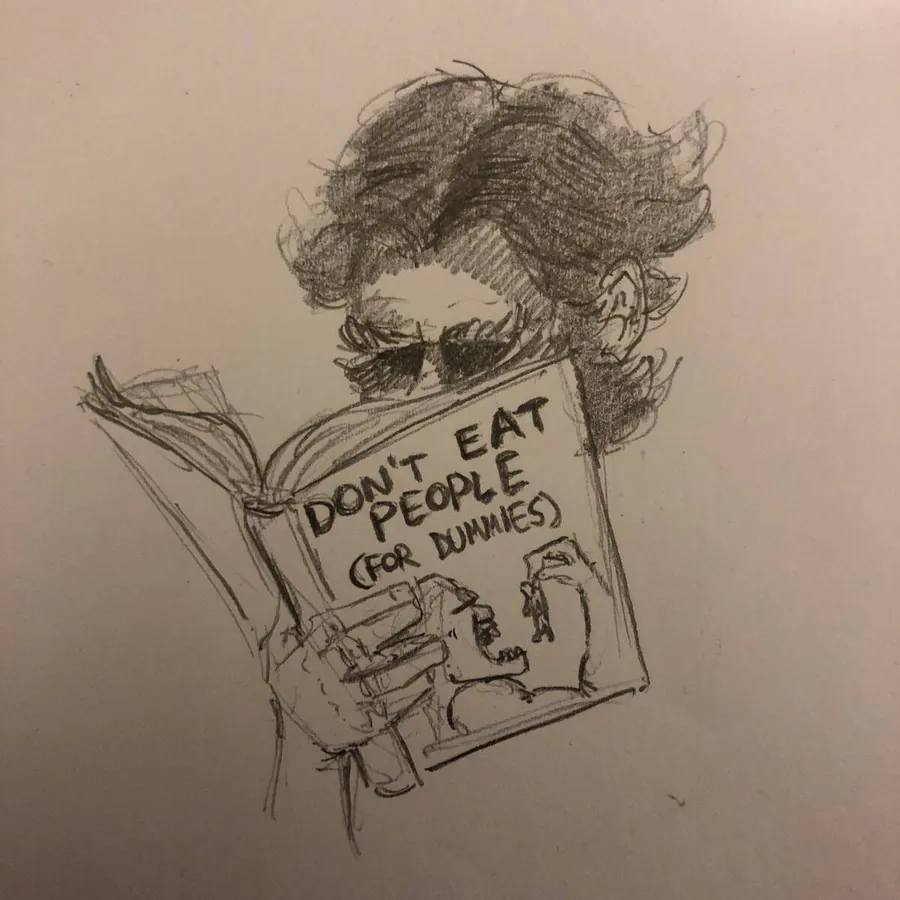 DON'T EAT
PEOPLE
(FOR DUMMIES)